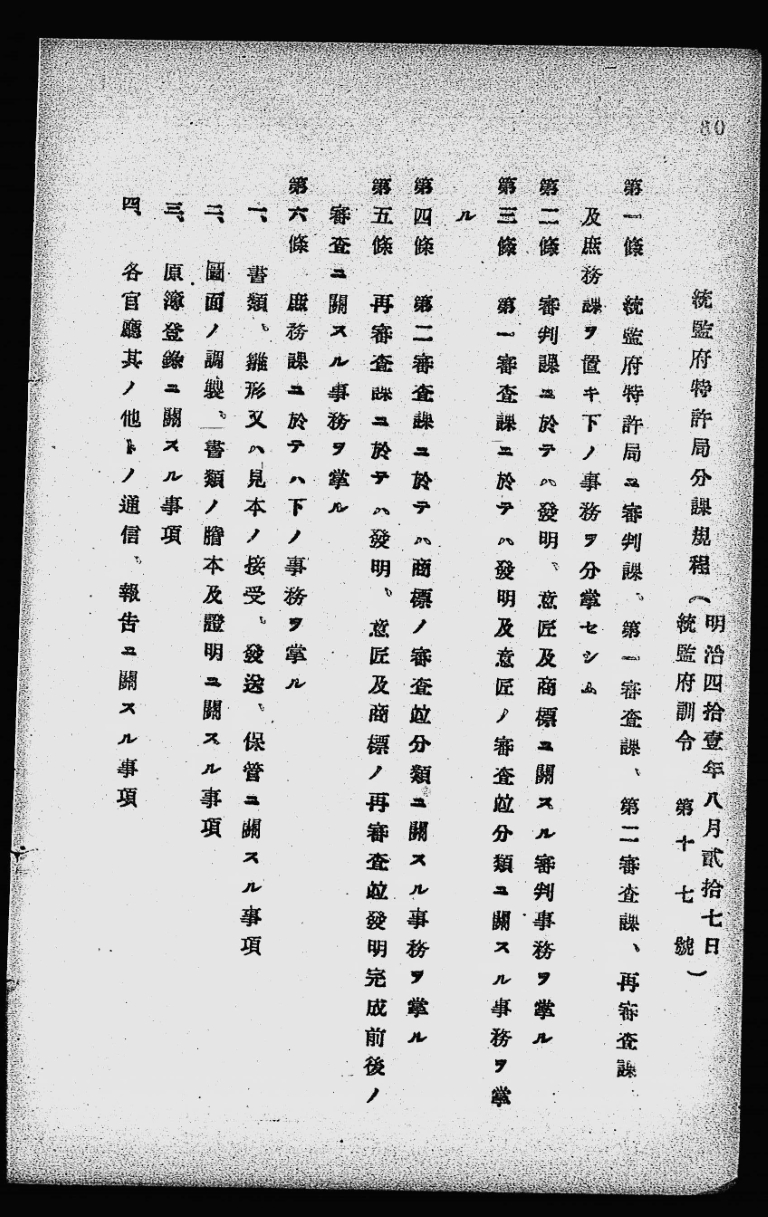 80
統監府特許局分課規程(明治四拾壹年八月貳拾七日
統監府訓令 第十七號)
第一條 統監府特許局ニ審判課、第一審査課、第二審査課、再審査課
及庶務課ヲ置キ下ノ事務ヲ分掌セシム
第二條 審判課ニ於テハ發明、意匠及商標ニ關スル審判事務ヲ掌ル
第三條 第一審査課ニ於テハ發明及意匠ノ審査竝分類ニ關スル事務ヲ掌
ル
第四條 第二審査課ニ於テハ商標ノ審査竝分類ニ關スル事務ヲ掌ル
第五條 再審査課ニ於テハ發明、意匠及商標ノ再審査竝發明完成前後ノ
審査ニ關スル事務ヲ掌ル
第六條 庶務課ニ於テハ下ノ事務ヲ掌ル
一、書類、雛形又ハ見本ノ接受、發送、保管ニ關スル事項
二、圖面ノ調製、書類ノ謄本及證明ニ關スル事項
三、原簿登錄ニ關スル事項
四、各官廳其ノ他トノ通信、報告ニ關スル事項